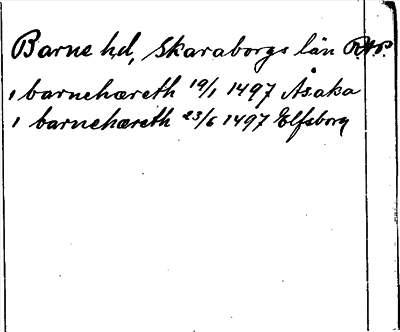 Barne hd, Skaraborgs län R.A.P.
i barnehæreth 19/1 1497 Åsaka
i barnehæreth 23/6 1497 Elfsborg